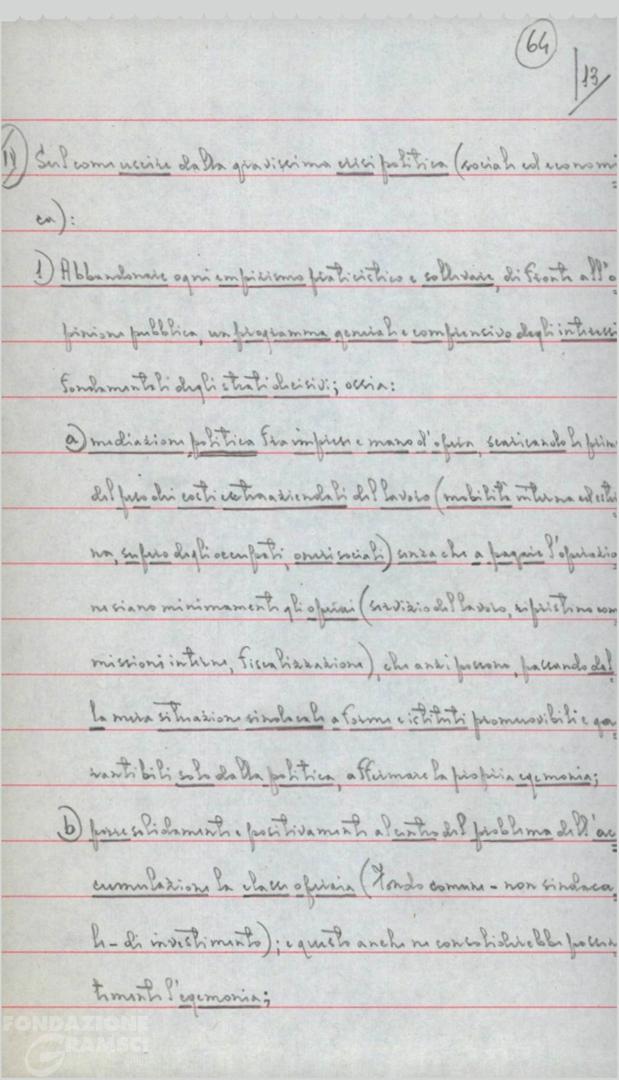 64
13
IV) Sul come uscire dalla gravissima crisi politica (sociale ed economi=
ca):
1) Abbandonare ogni empirismo praticistico e sollevare, di fronte all'o=
pinione pubblica, un programma generale e comprensivo degli interessi
fondamentali degli strati decisivi; ossia:
a) mediazione politica fra imprese e mano d'opera, scaricando le prime
del peso dei costi extraaziendali del lavoro (mobilità interna ed ester=
na, supero degli occupati, oneri sociali) senza che a pagare l'operazio=
ne siano minimamente gli operai (servizio del lavoro, ripristino com=
missioni interne, fiscalizzazione), che anzi possono, passando dal=
la mera situazione sindacale a forme e istituti promuovibili e ga=
rantibili solo dalla politica, affermare la propria egemonia;
b) porre solidamente e positivamente al centro del problema dell'ac=
cumulazione la classe operaia (Fondo comune - non sindaca=
le - di investimento); e questo anche ne consoliderebbe poten=
temente l'egemonia;
FONDAZIONE
GRAMSCI